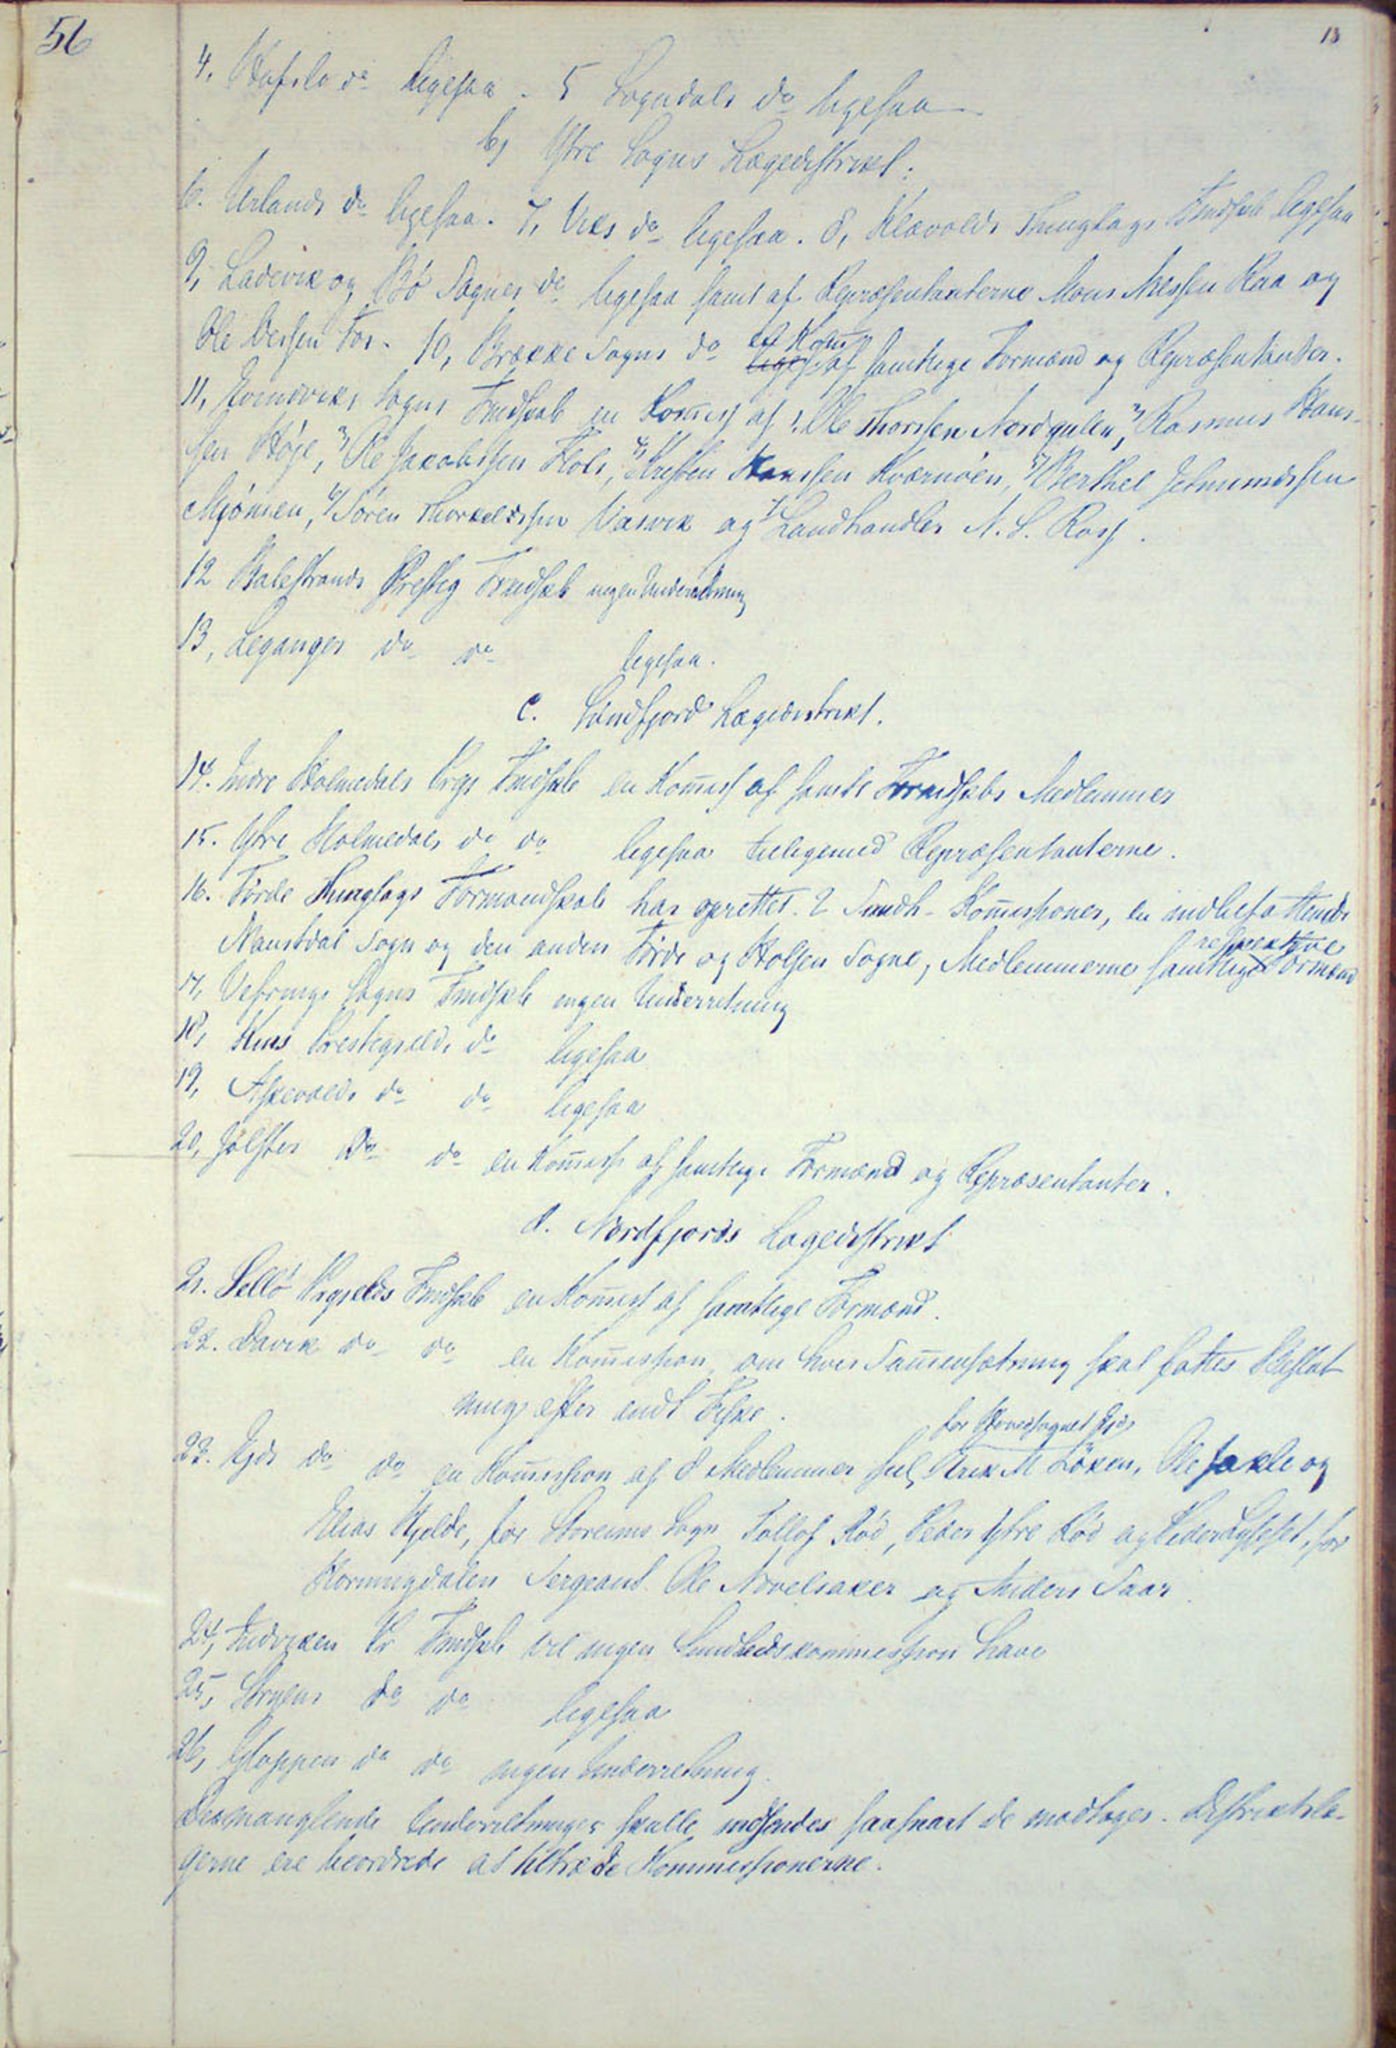 56
13
4, Hafslo do ligesaa. 5 Sogndals do ligesaa
b, Ytre Sogns Lægedistrikt:
6. Urlands do ligesaa. 7, Viks do ligesaa. 8, Klævolds Thinglags Fmdskb ligesaa
9, Ladevik og Bø Sognes do ligesaa samt af Repræsentanterne Mons Nilssen Raa og
Ole Versen For. 10, Brække Sogns do en Komss af samtlige Formænd og Repræsentanter.
11, Evindviks Sogns Fmdskab en Komiss af 1. Ole Thorssen Nordgulen, 2/ Rasmus Hans-
sen Høje, 3/ Ole Jacobssen Floli, 4/ Kresten Hanssen Kværnøen, 5/ Berthel Jetmundssen
Mjømen, 6/ Sören Thorkeldssen Vasvik og 7/ Landhandler N. S. Ross.
12 Balestrands Prestg Fmdskb ingen Underretning
13, Leganger do do ligesaa.
C. Söndfjord Lægedistrikt.
14. Indre Holmedals Prgs Fmdskb en Komiss af samtl Formdskbs Medlemmer
15. Ytre Holmedals do do ligesaa tilligemed Repræsentanterne.
16. Förde Thinglags Formandskab har oprettet 2 Sundh-Komissioner, en indbefattende
Naustdal Sogn og den anden Förde og Holsen Sogne, Medlemmerne samtlige respektive Formænd
17, Vefrings Sogns Fmdskb ingen Underretning
18, Kins Prestegjælds do ligesaa
19, Askevolds do do ligesaa
20, Jölster do do en Komiss af samtlige Formænd og Repræsentanter.
d. Nordfjords Lægedistrikt
21. Sellø Prgjelds Fmdskb en Komiss af samtlige Formænd.
22. Davik do do en Komission, om hvis Sammensætning skal fattes Beslut
ning efter endt Fiske.
23. Ejds do do en Komission af 8 Medlemmer for Hovedsognet Ejds Erik M Löken, Ole Jakle og
Elias Hjelde, for Storeims Sogn Tollef Rød, Peder Ytre Rød og Peder Lyslet, for
Horningdalen Sergeant Ole Navelsaker og Anders Saar.
24, Indviken Pr Fmdskb vil ingen Sundhedskommission have
25, Stryens do do ligesaa
26, Gloppen do do ingen Underretning.
De manglende Underretninger skulle indsendes saasnart de modtages. Distriktslæ-
gerne ere beordrede at tiltræde Kommissionerne.